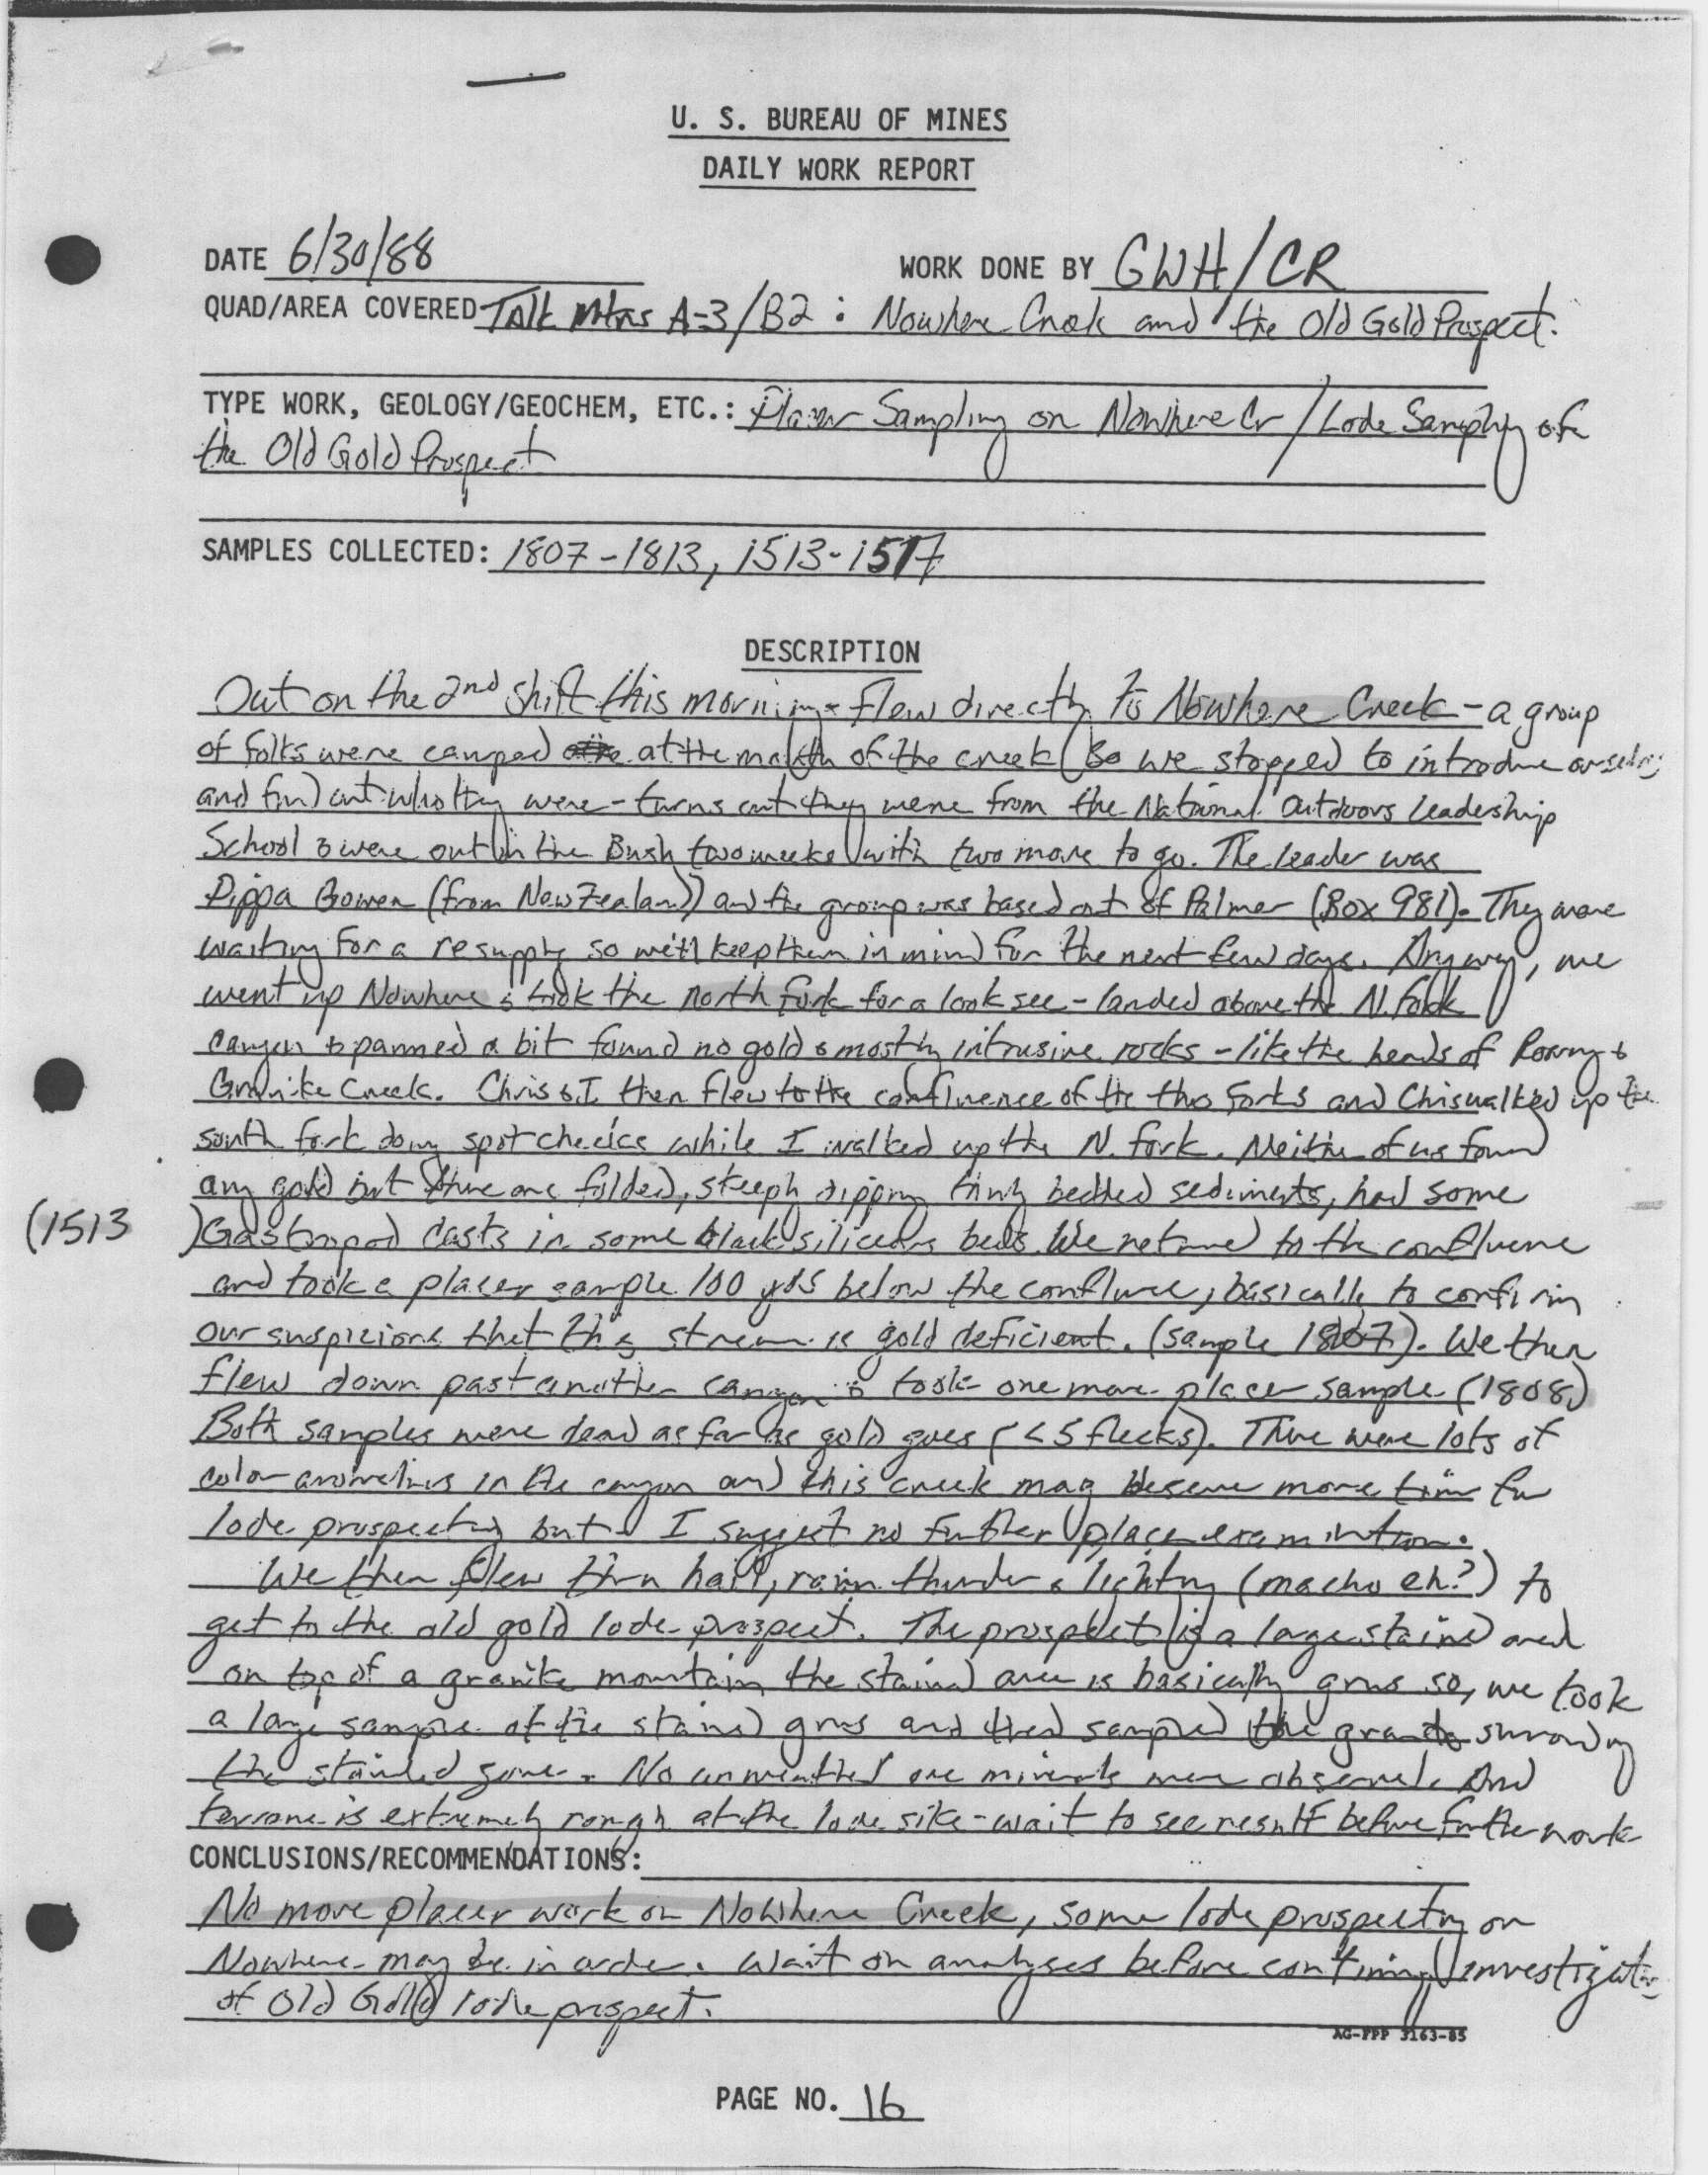 U. S. BUREAU OF MINES
DAILY WORK REPORT
DATE 6/30/88 WORK DONE BY GWH/CR
QUAD/AREA COVERED Talk Mtns A-3/B2 : Nowhere Creek and the Old Gold Prospect.
TYPE WORK, GEOLOGY/GEOCHEM, ETC.: Placer Sampling on Nowhere Cr / Lode Sampling of
the Old Gold Prospect
SAMPLES COLLECTED: 1807-1813, 1513-1517
DESCRIPTION
Out on the 2nd shift this morning & flew directly to Nowhere Creek - a group
of folks were camped at the mouth of the creek so we stopped to introduce ourselves
and find out who they were - turns out they were from the National Outdoors Leadership
School & were out in the Bush two weeks with two more to go. The leader was
Pippa Bowen (from New Zealand) and the group was based out of Palmer (Box 981). They were
waiting for a resupply so we'll keep them in mind for the next few days. Anyway, we
went up Nowhere & took the north fork for a look see - landed above the N. fork
canyon & panned a bit found no gold & mostly intrusive rocks - like the heads of Roaring &
Granite Creek. Chris & I then flew to the confluence of the two forks and Chris walked up the
south fork doing spot checks while I walked up the N. fork. Neither of us found
any gold but there are folded, steeply dipping thinly bedded sediments, had some
(1513) Gastropod casts in some black siliceous beds. We returned to the confluence
and took a placer sample 100 yds below the confluence, basically to confirm
our suspicions that this stream is gold deficient. (sample 1807). We then
flew down past another canyon & took one more placer sample (1808)
Both samples were dead as far as gold goes (<5 flecks). There were lots of
color anomalies in the canyon and this creek may deserve more time for
lode prospecting but I suggest no further placer examination.
We then flew thru hail, rain thunder & lightning (macho eh?) to
get to the old gold lode prospect. The prospect is a large stained area
on top of a granite mountain the stained area is basically grus so, we took
a large sample of the stained grus and then sampled the granite surrounding
the stained zone. No unweathered ore minerals were observed. And
terrane is extremely rough at the lode site - wait to see result before further work
CONCLUSIONS/RECOMMENDATIONS:
No more placer work on Nowhere Creek, some lode prospecting on
Nowhere may be in order. Wait on analyses before continuing investigation
of Old Gold lode prospect.
AG-FPP 3163-85
PAGE NO. 16